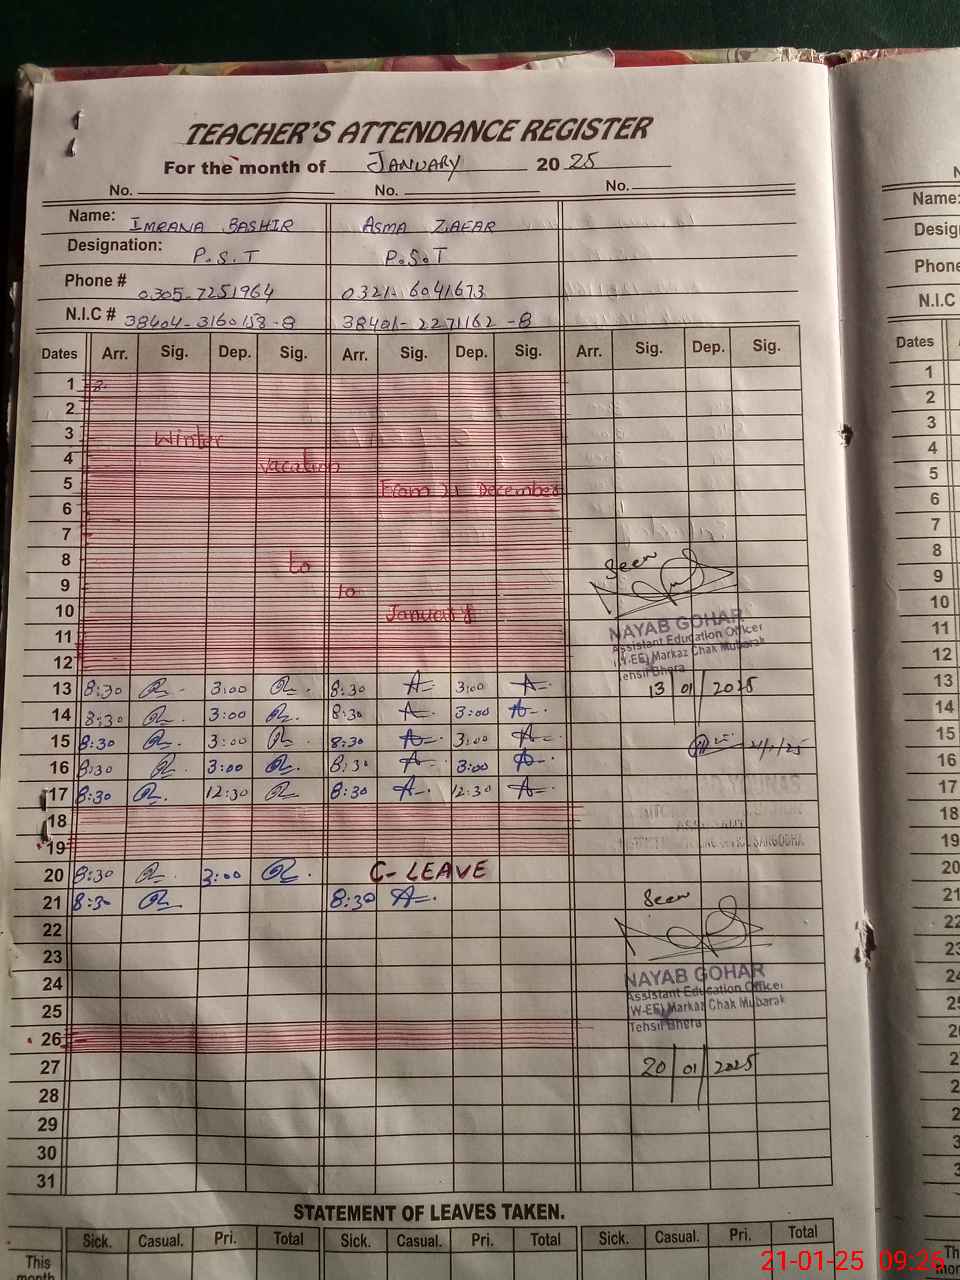 TEACHER'S ATTENDANCE REGISTER
For the month of JANUARY 2025
No. No. No.
Name: IMRANA BASHIR ASMA ZAFAR
Designation: P.S.T P.S.T
Phone # 0305-7251964 0321-6041673
N.I.C # 38404-3160158-8 38401-2271162-8
Dates Arr. Sig. Dep. Sig. Arr. Sig. Dep. Sig. Arr. Sig. Dep. Sig.
1
2
3 Winter
4 vacation
5 From 21 December
6
7
8 to
9 10
10 January
11
12
Seen
NAYAB GOHAR
Assistant Education Officer
Markaz Chak Mubarak
Tehsil Bhera
13/01/2025
13 8:30 3:00 8:30 A 3:00 A
14 8:30 3:00 8:30 A 3:00 A
15 8:30 3:00 8:30 A 3:00 A
16 8:30 3:00 8:30 A 3:00 A
17 8:30 12:30 8:30 A 12:30 A
18
19
20 8:30 3:00 C-LEAVE
21 8:30 8:30 A
22
23
24
25
26
27
28
29
30
31
Seen
NAYAB GOHAR
Assistant Education Officer
(W-EE) Markaz Chak Mubarak
Tehsil Bhera
20/01/2025
STATEMENT OF LEAVES TAKEN.
Sick. Casual. Pri. Total Sick. Casual. Pri. Total Sick. Casual. Pri. Total
This
month
Name:
Phone
N.I.C #
Dates
1
2
3
4
5
6
7
8
9
10
11
12
13
14
15
16
17
18
19
20
21
22
23
24
21-01-25 09:26